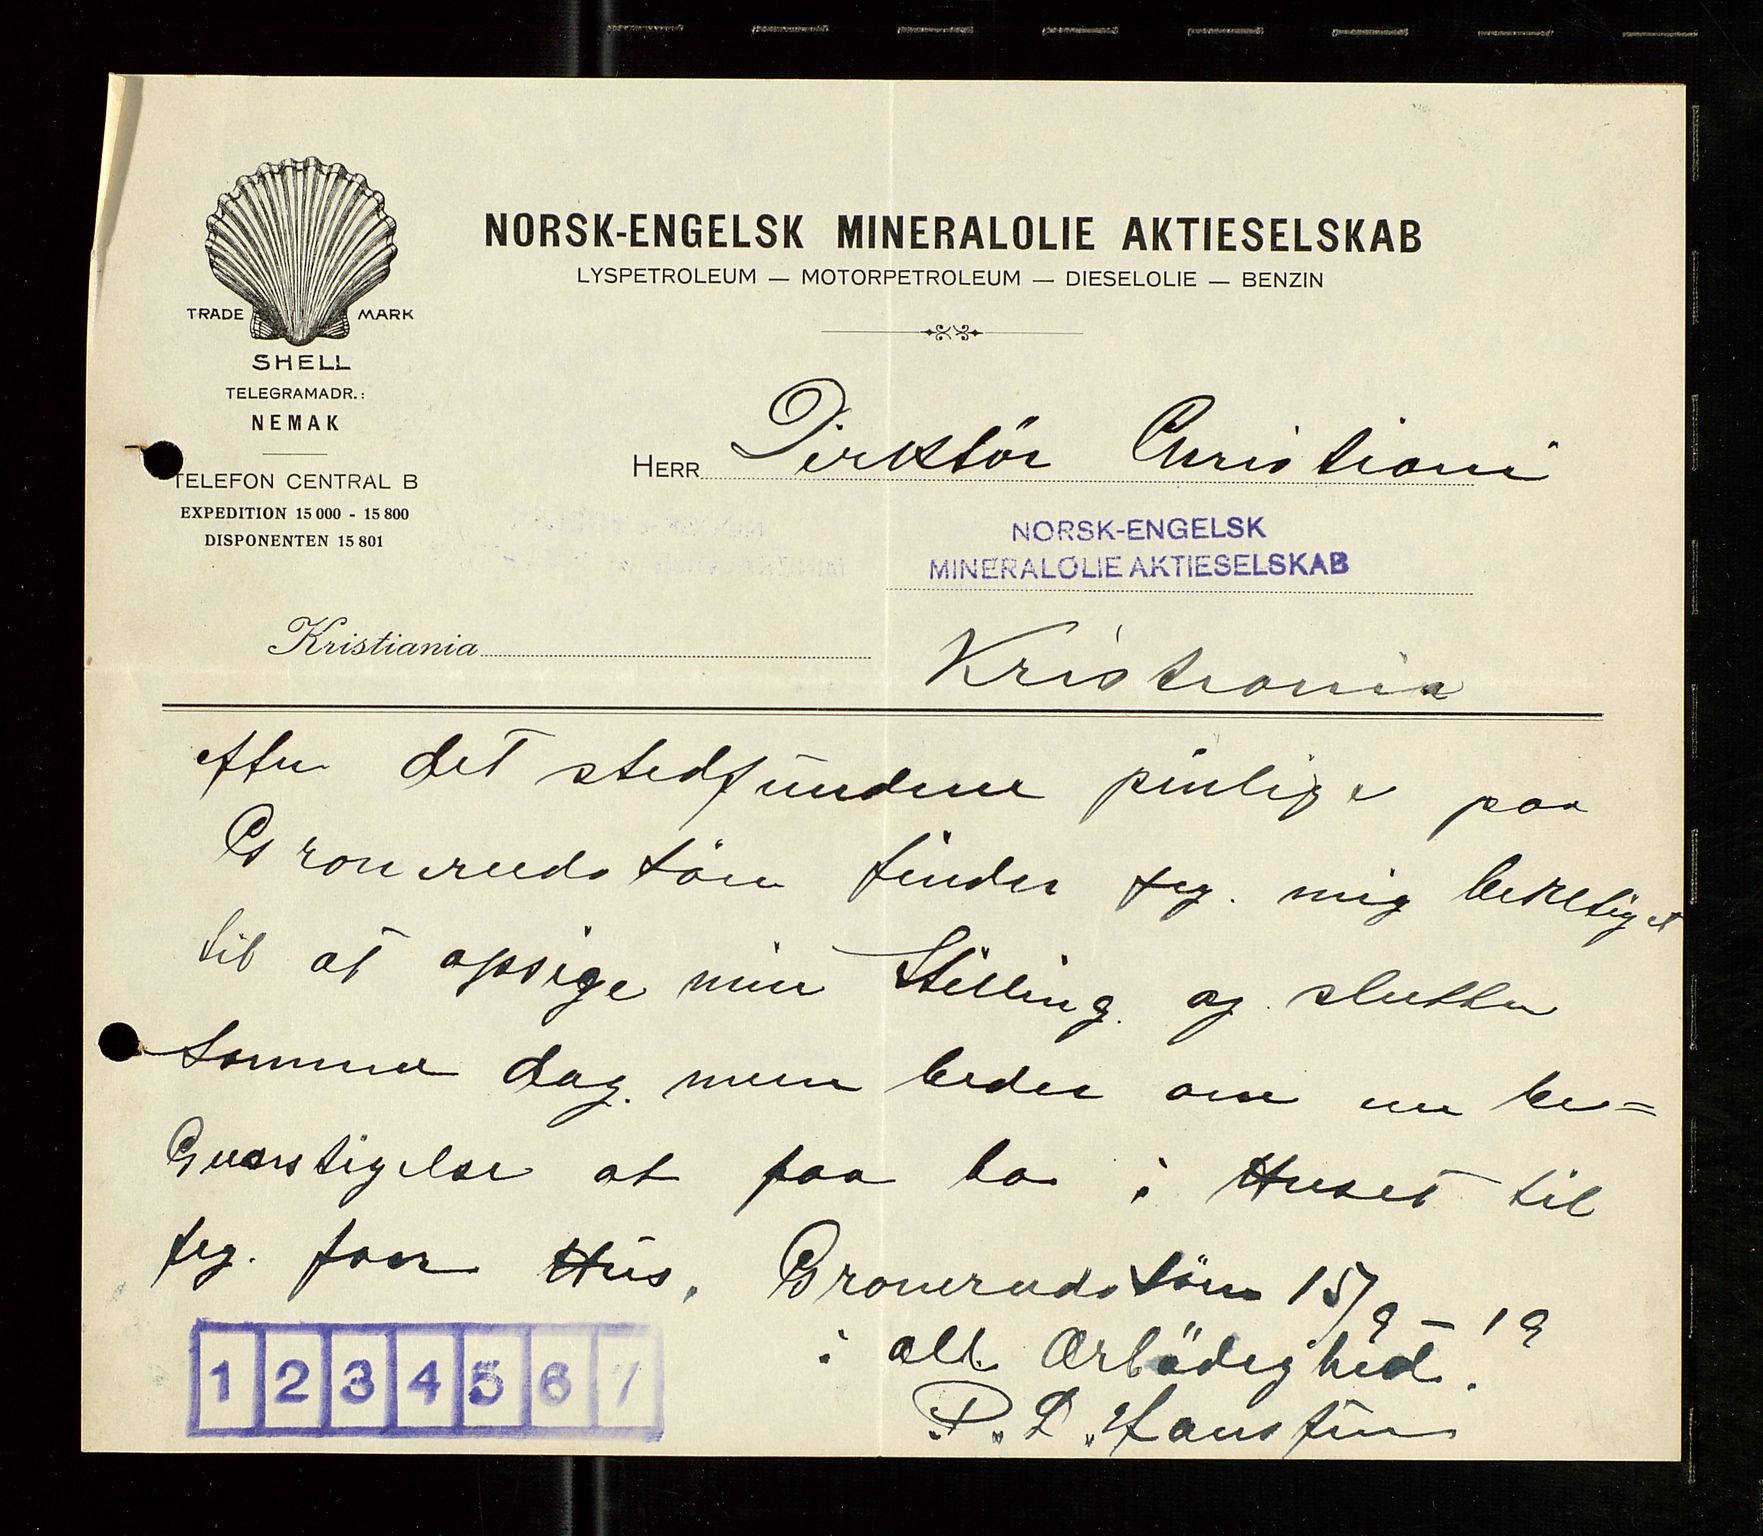 NORSK-ENGELSK MINERALOLIE AKTIESELSKAB
LYSPETROLEUM — MOTORPETROLEUM — DIESELOLIE — BENZIN
TRADE MARK
SHELL
TELEGRAMADR.:
NEMAK
TELEFON CENTRAL B
EXPEDITION 15 000 - 15 800
DISPONENTEN 15 801
HERR Dirktör Christiani
NORSK-ENGELSK
MINERALOLIE AKTIESELSKAB
Kristiania
Kristiania
efter det stedfundene pinlige paa
Gronerudstöen finder jeg. mig berettiget
til at opsige min Stilling. og slutter
samme dag. men beder om en be=
Gunstigelse at faa bo i Huset til
jeg. faar Hus. Gronerudstöen 15/9 - 19
i all Ærbödighed.
P. L. Hansten
1 2 3 4 5 6 7